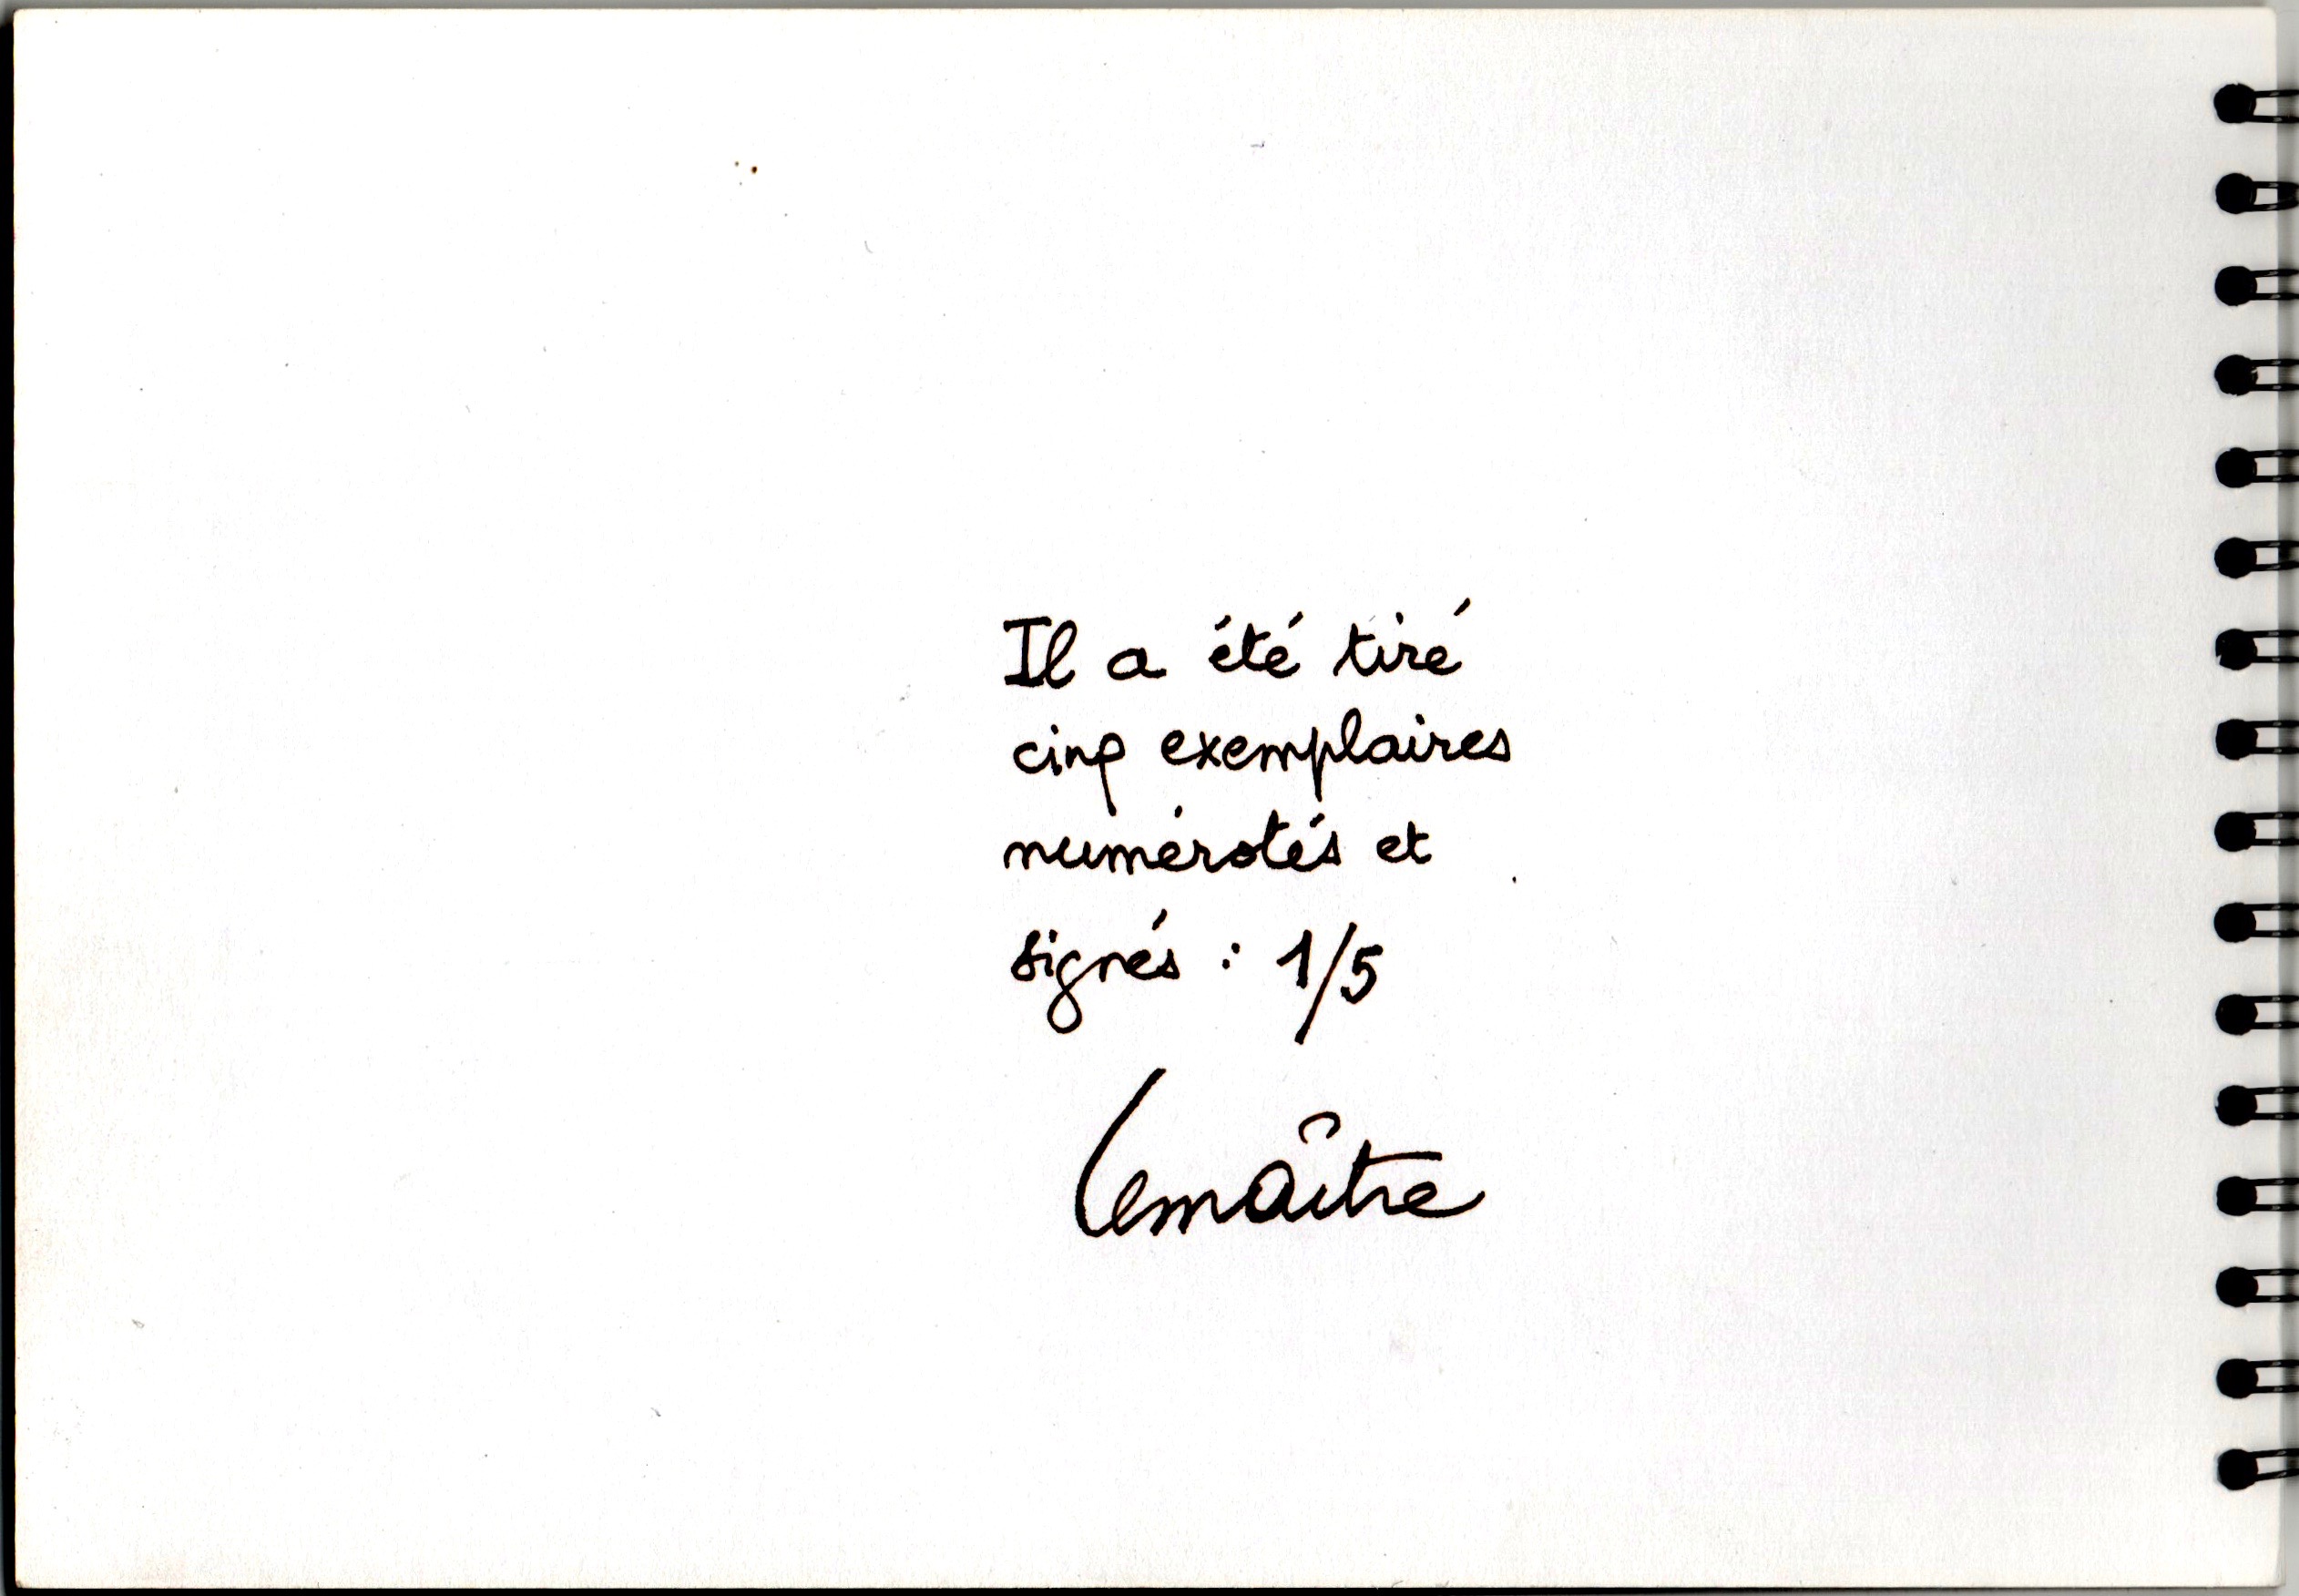 Il a été tiré
cinq exemplaires
numérotés et
signés : 1/5
Lemaître